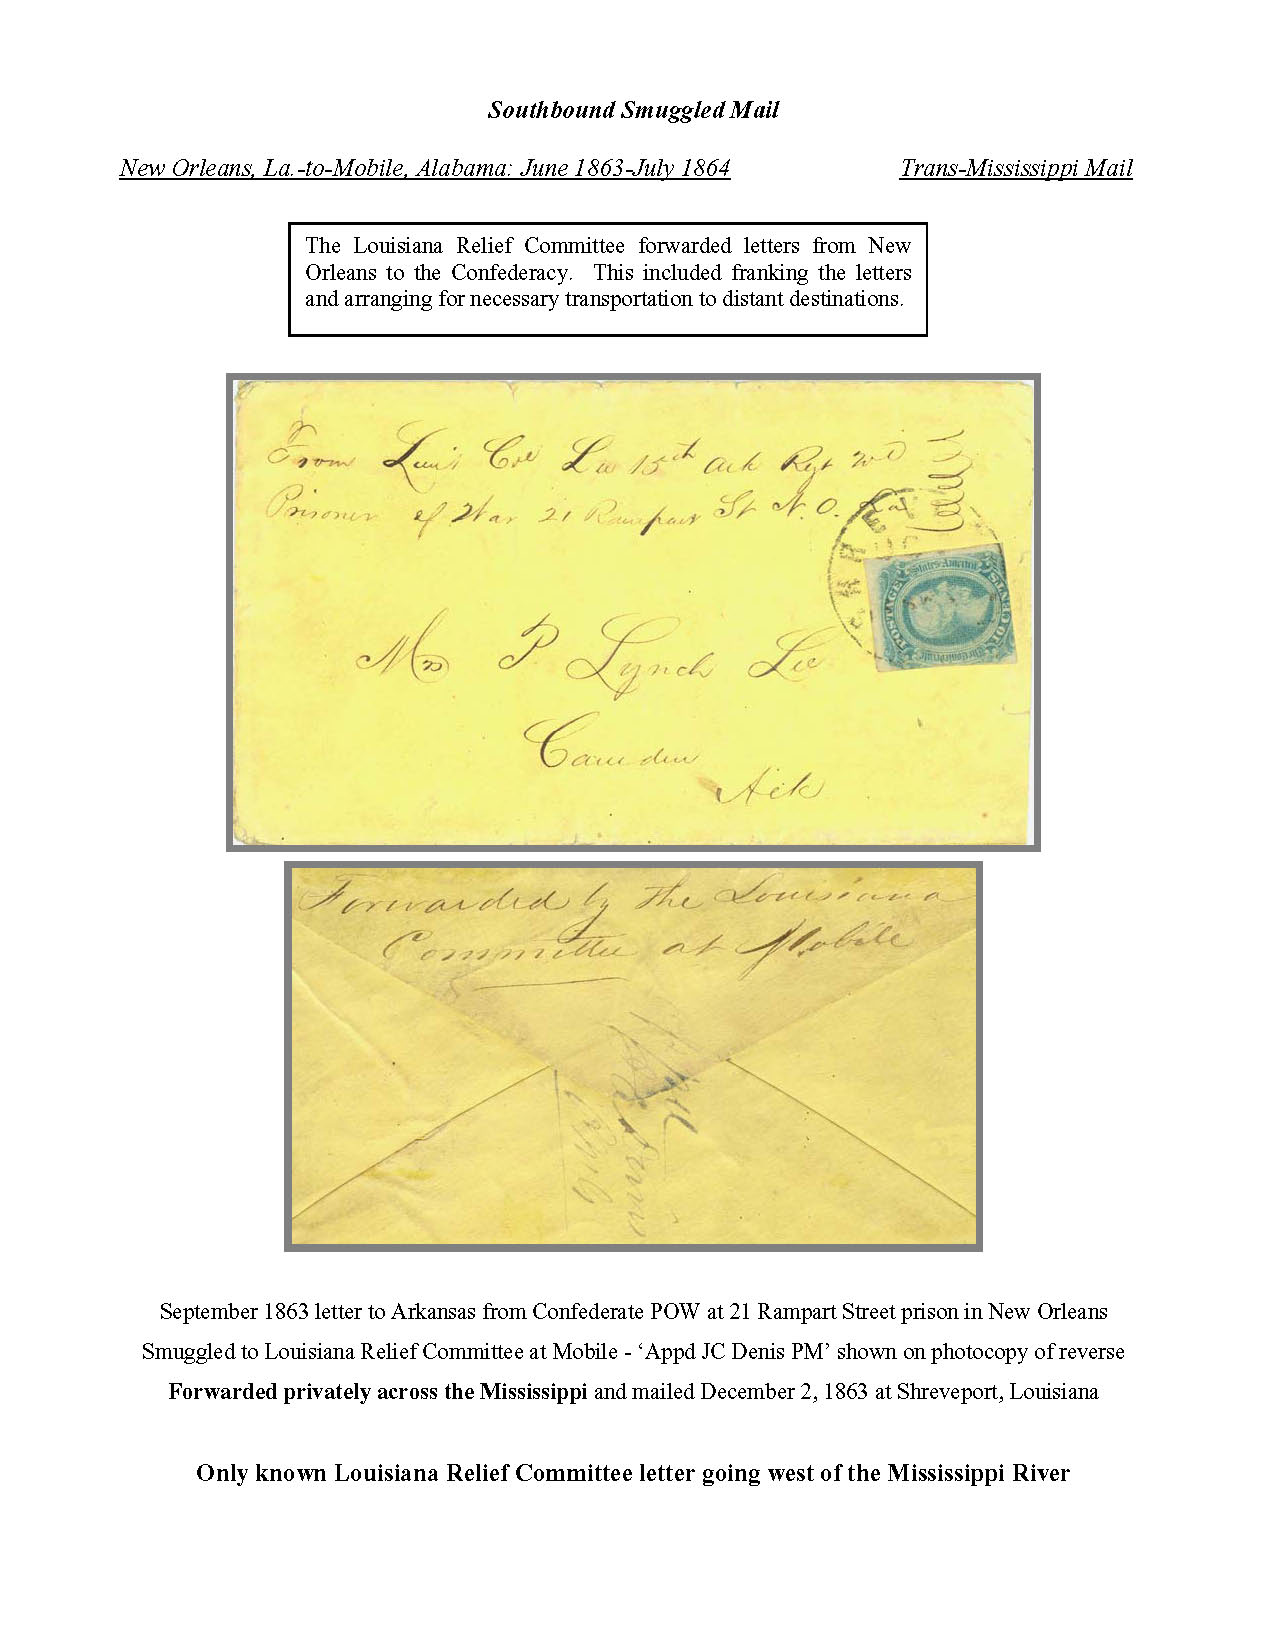 Southbound Smuggled Mail
New Orleans, La.-to-Mobile, Alabama: June 1863-July 1864 Trans-Mississippi Mail
The Louisiana Relief Committee forwarded letters from New
Orleans to the Confederacy. This included franking the letters
and arranging for necessary transportation to distant destinations.
From Lun's Col La 15th Ark Regt
Prisoner of War 21 Rampart St N.O. La
POSTAGE
Mrs P Lynch Lee
Camden
Ark
Forwarded by the Louisiana
Committee at Mobile
September 1863 letter to Arkansas from Confederate POW at 21 Rampart Street prison in New Orleans
Smuggled to Louisiana Relief Committee at Mobile - ‘Appd JC Denis PM’ shown on photocopy of reverse
Forwarded privately across the Mississippi and mailed December 2, 1863 at Shreveport, Louisiana
Only known Louisiana Relief Committee letter going west of the Mississippi River